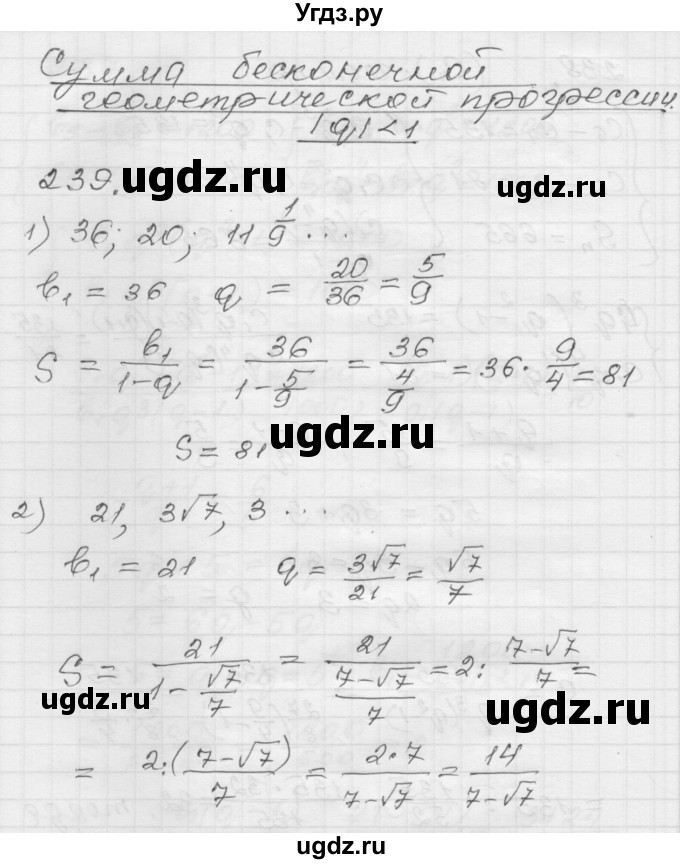 Угдз.ру
Сумма бесконечной
геометрической прогрессии.
|q|<1
ugdz.ru
239.
ugdz.ru
1) 36; 20; 11 1/9 ...
b₁ = 36 q = 20/36 = 5/9
S = b₁/(1-q) = 36/(1-5/9) = 36/(4/9) = 36·9/4 = 81
ugdz.ru
S = 81
2) 21, 3√7, 3 ...
b₁ = 21 q = 3√7/21 = √7/7
S = 21/(1-√7/7) = 21/((7-√7)/7) = 2:(7-√7)/7 =
ugdz.ru
ugdz.ru
= 2:((7-√7)/7) = 2·7/(7-√7) = 14/(7-√7)
ugdz.ru